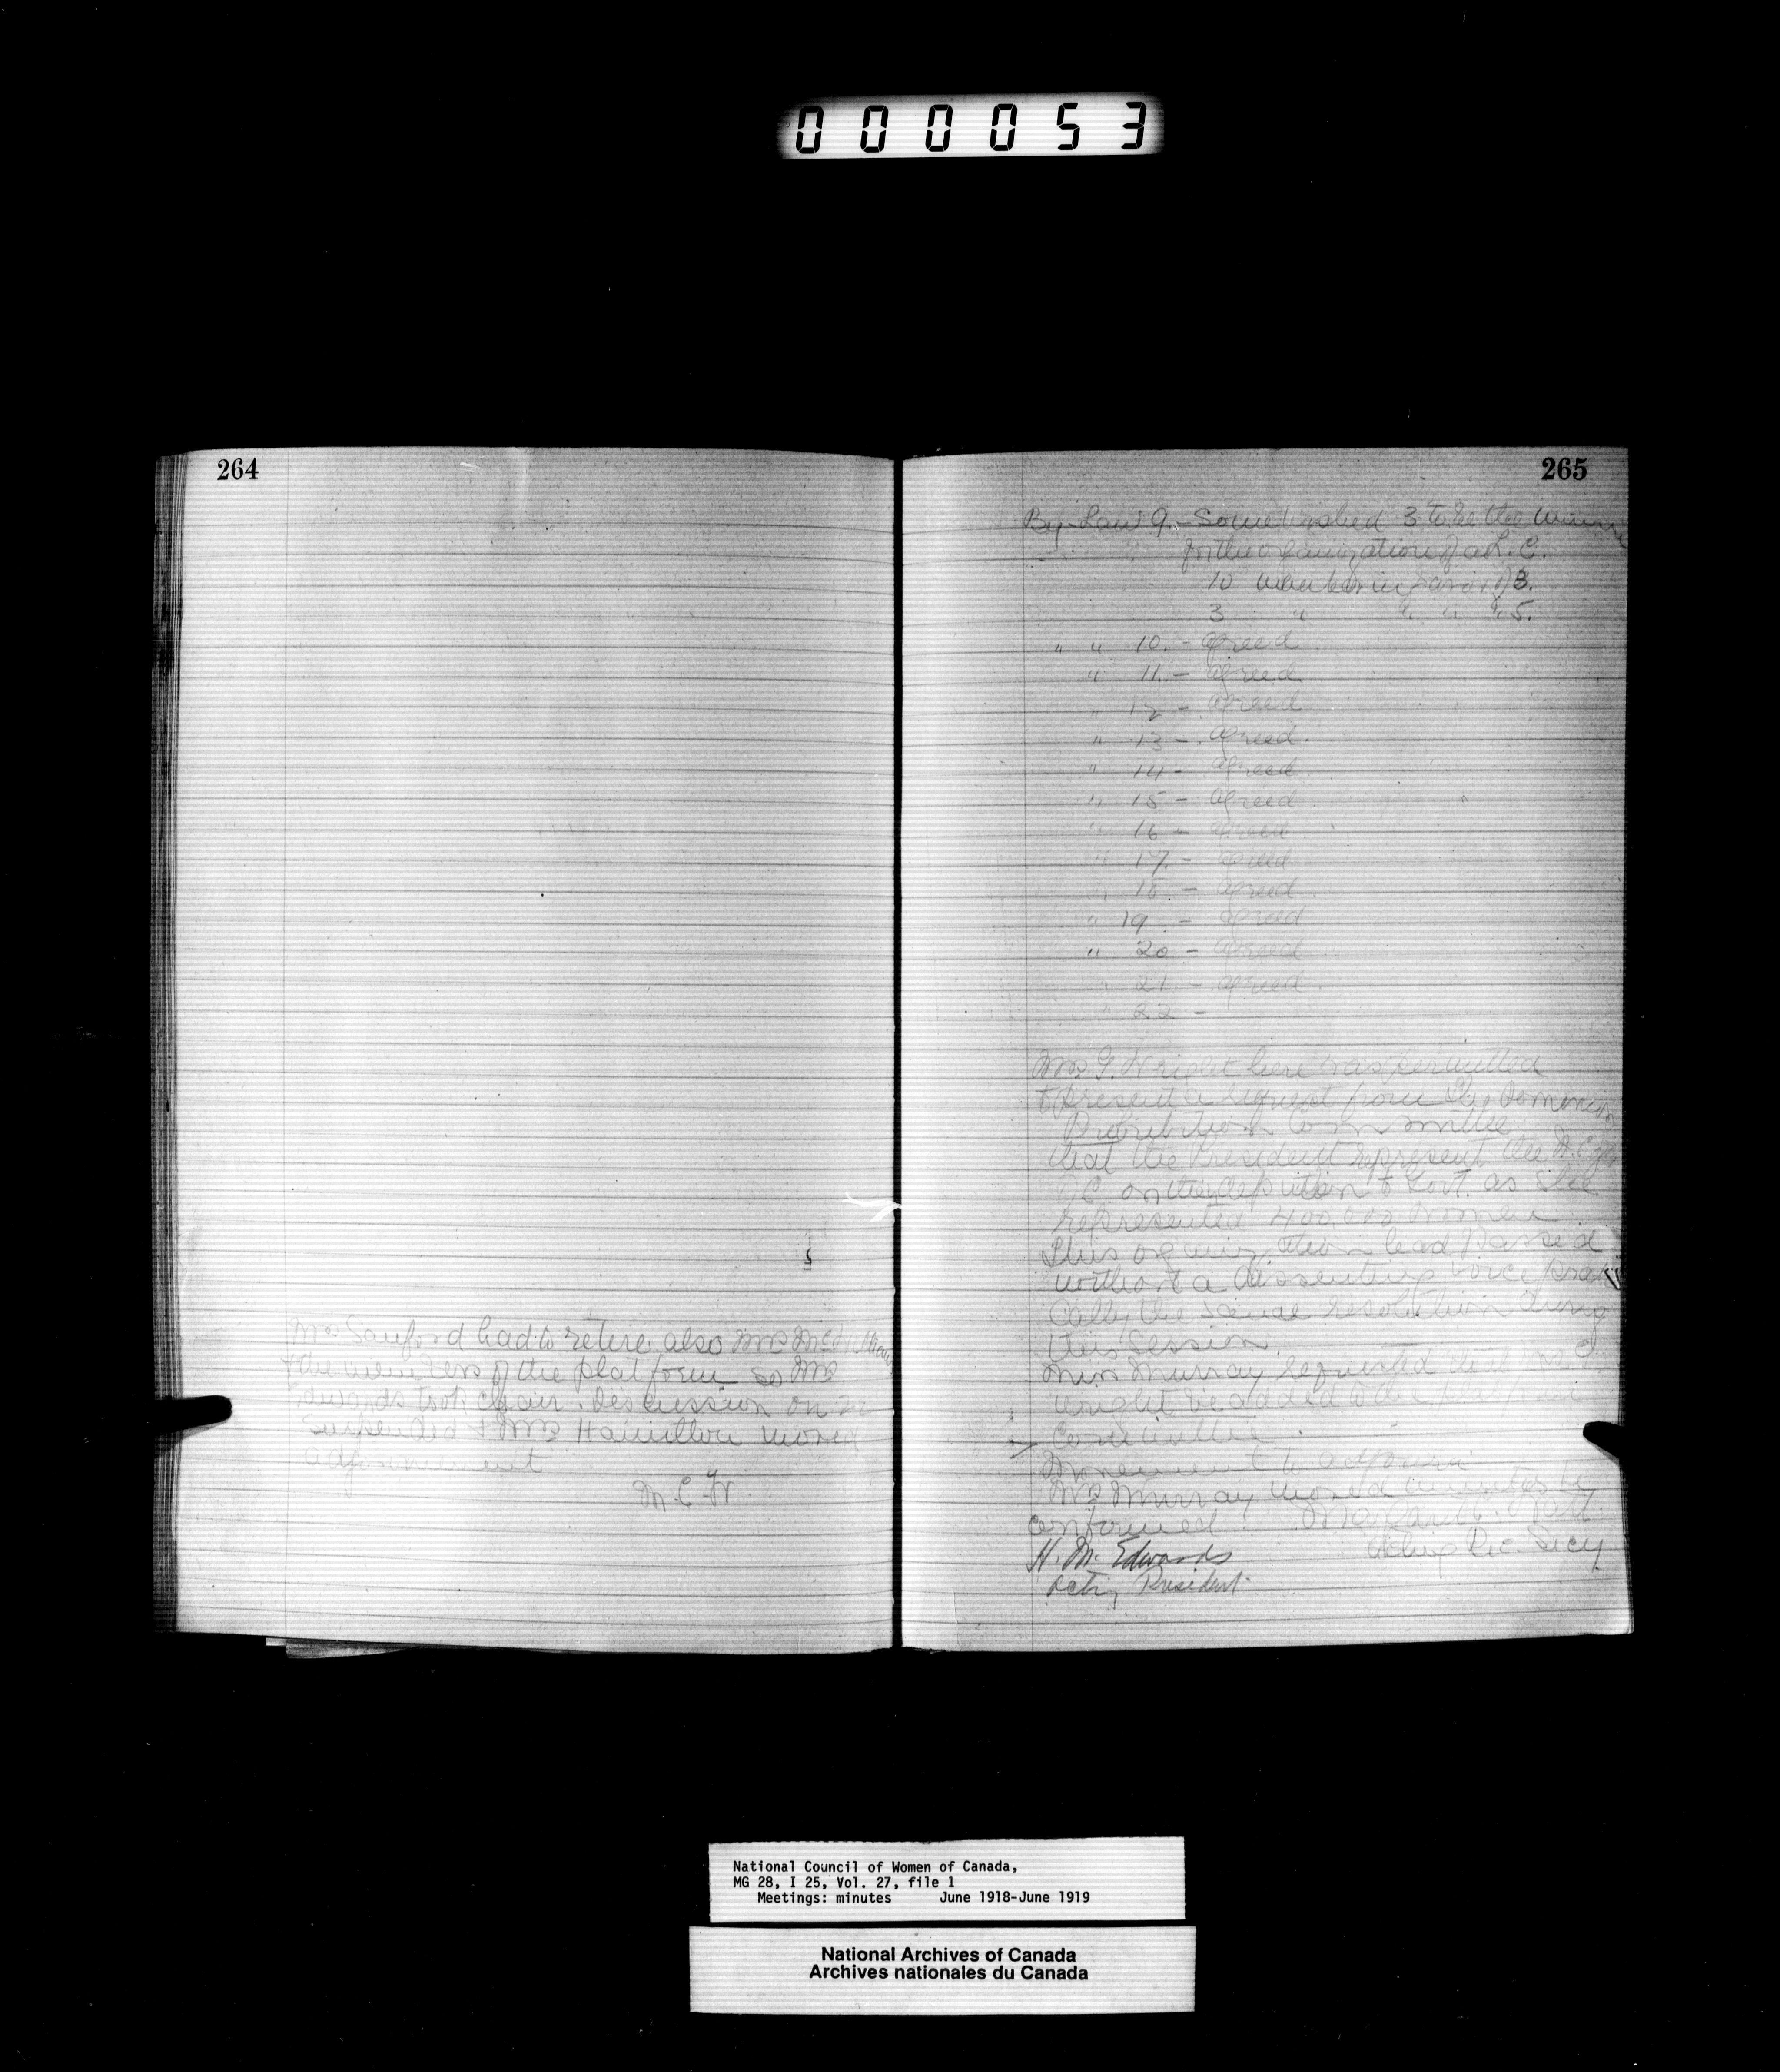 000053
264
Mrs Sanford had to retire also Mrs
& the members of the platform so Mrs
Edwards took chair. Discussion on 22
suspended & Mrs Hamilton moved
adjournment
265
By-Law 9. - Some wished 3 to be the
for the organization of a L. C.
10 members in favor of 3.
3 " " " " 5.
" " 10. - agreed
" 11. - agreed
" 12 - agreed
" 13 - agreed.
" 14 - agreed
" 15 - agreed
" 16 - agreed
" 17. - agreed
" 18 - agreed
" 19 - agreed
" 20 - agreed
" 21 - agreed.
" 22 -
Mrs. G. Wright here was permitted
to present a request from the Dominion
Prohibition Committee
that the President represent the N. C. of
C. on the deputation to Govt. as she
represented 400,000 women
This organization had passed
without a dissenting voice practi
cally the same resolution during
this session.
Mrs Murray requested that Mrs. G.
Wright be added to the platform
Committee.
Movement to adjourn
Mrs Murray moved minutes be
confirmed.
Acting Rec. Secy
H. M. Edwards
Acting President
National Council of Women of Canada,
MG 28, I 25, Vol. 27, file 1
Meetings: minutes June 1918-June 1919
National Archives of Canada
Archives nationales du Canada